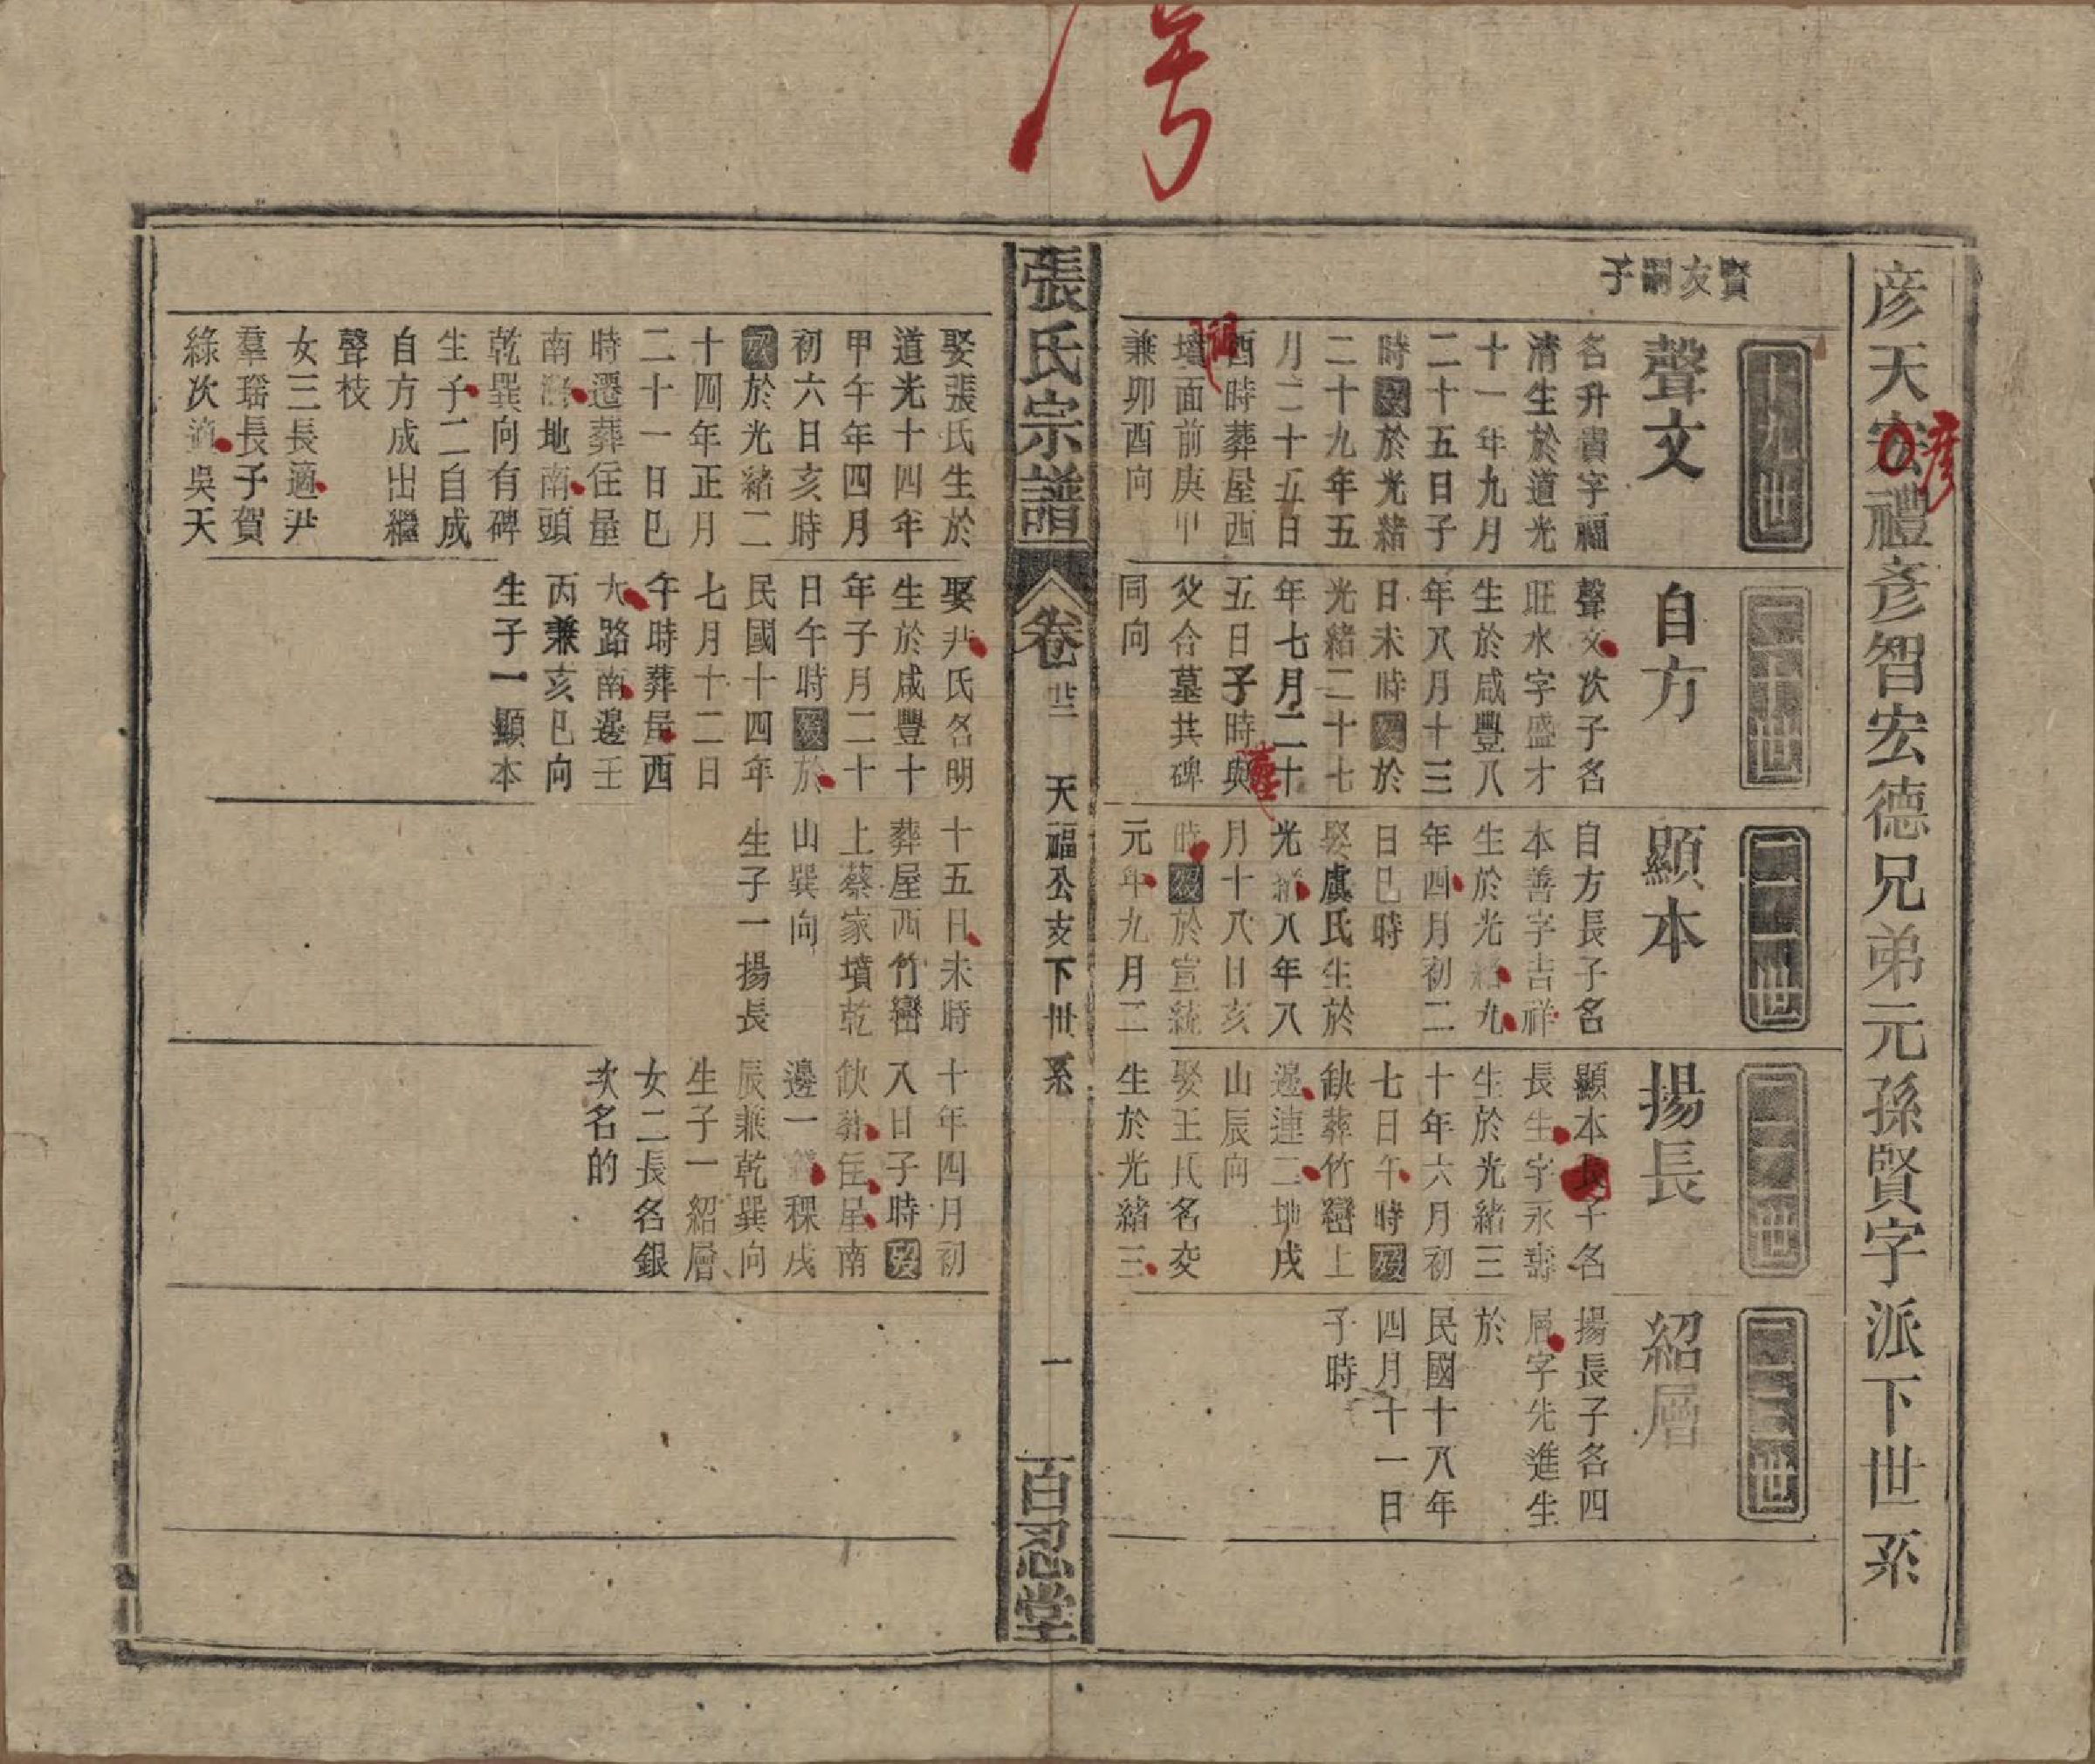 彦天宏禮彥智宏德兄弟元孫賢字派下世系
彦
賢友嗣子
十九世
聲文
名升貴字福
清生於道光
十一年九月
二十五日子
時歿於光緒
二十九年五
月二十五日
酉時葬屋西
墳面前庚甲
兼卯酉向
娶張氏生於
道光十四年
甲午年四月
初六日亥時
歿於光緒二
十四年正月
二十一日巳
時遷葬住屋
南 地南頭
乾巽向有碑
生子二自成
自方成出繼
聲枝
女三長適尹
羣瑶長子賀
綠次適吳天
二十世
自方
聲文次子名
旺水字盛才
生於咸豐八
年八月十三
日未時歿於
光緒二十七
年七月二十
五日子時與
父合墓共碑
同向
娶尹氏名明
生於咸豐十
年子月二十
日午時歿於
民國十四年
七月十二日
午時葬屋西
大路南邊壬
丙兼亥巳向
生子一顯本
二十一世
顯本
自方長子名
本善字吉祥
生於光緒九
年四月初二
日巳時
娶虞氏生於
光緒八年八
月十八日亥
時歿於宣統
元年九月二
十五日未時
葬屋西竹巒
上蔡家墳乾
山巽向
生子一揚長
二十二世
揚長
顯本長子名
長生字永壽
生於光緒三
十年六月初
七日午時歿
缺葬竹巒上
邊連二地戌
山辰向
娶王氏名奀
生於光緒三
十年四月初
八日子時歿
缺葬住屋南
邊一 稞戌
辰兼乾巽向
生子一紹層
女二長名銀
次名的
二十三世
紹層
揚長子名四
層字先進生
於
民國十八年
四月十一日
子時
張氏宗譜
卷廿三
天福公支下世系
一
百忍堂